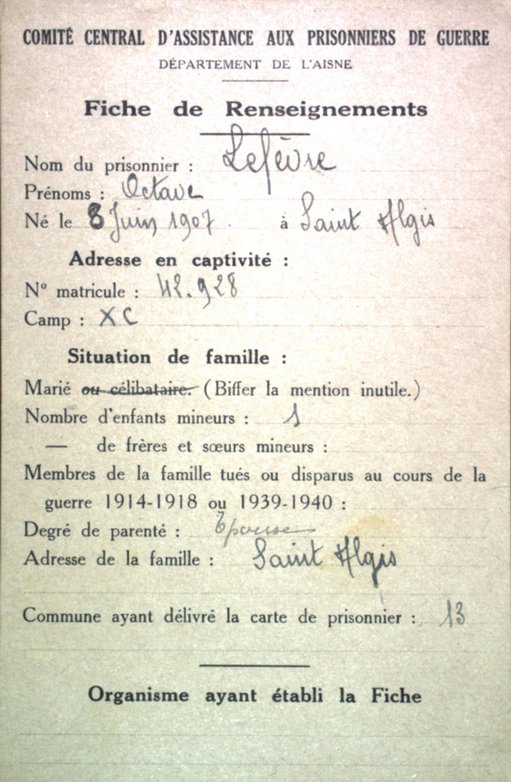 COMITÉ CENTRAL D'ASSISTANCE AUX PRISONNIERS DE GUERRE
DÉPARTEMENT DE L'AISNE
Fiche de Renseignements
Nom du prisonnier : Lefèvre
Prénoms : Octave
Né le 8 Juin 1907 à Saint Algis
Adresse en captivité :
N° matricule : 42.928
Camp : XC
Situation de famille :
Marié ou célibataire. (Biffer la mention inutile.)
Nombre d'enfants mineurs : 1
— de frères et sœurs mineurs :
Membres de la famille tués ou disparus au cours de la
guerre 1914-1918 ou 1939-1940 :
Degré de parenté : Epouse
Adresse de la famille : Saint Algis
Commune ayant délivré la carte de prisonnier : 13
Organisme ayant établi la Fiche